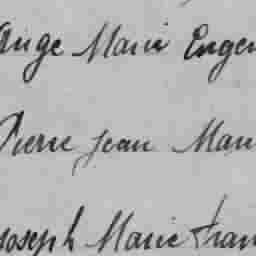 Ange Marie Eugen
Pierre Jean Mari
Joseph Marie Fran